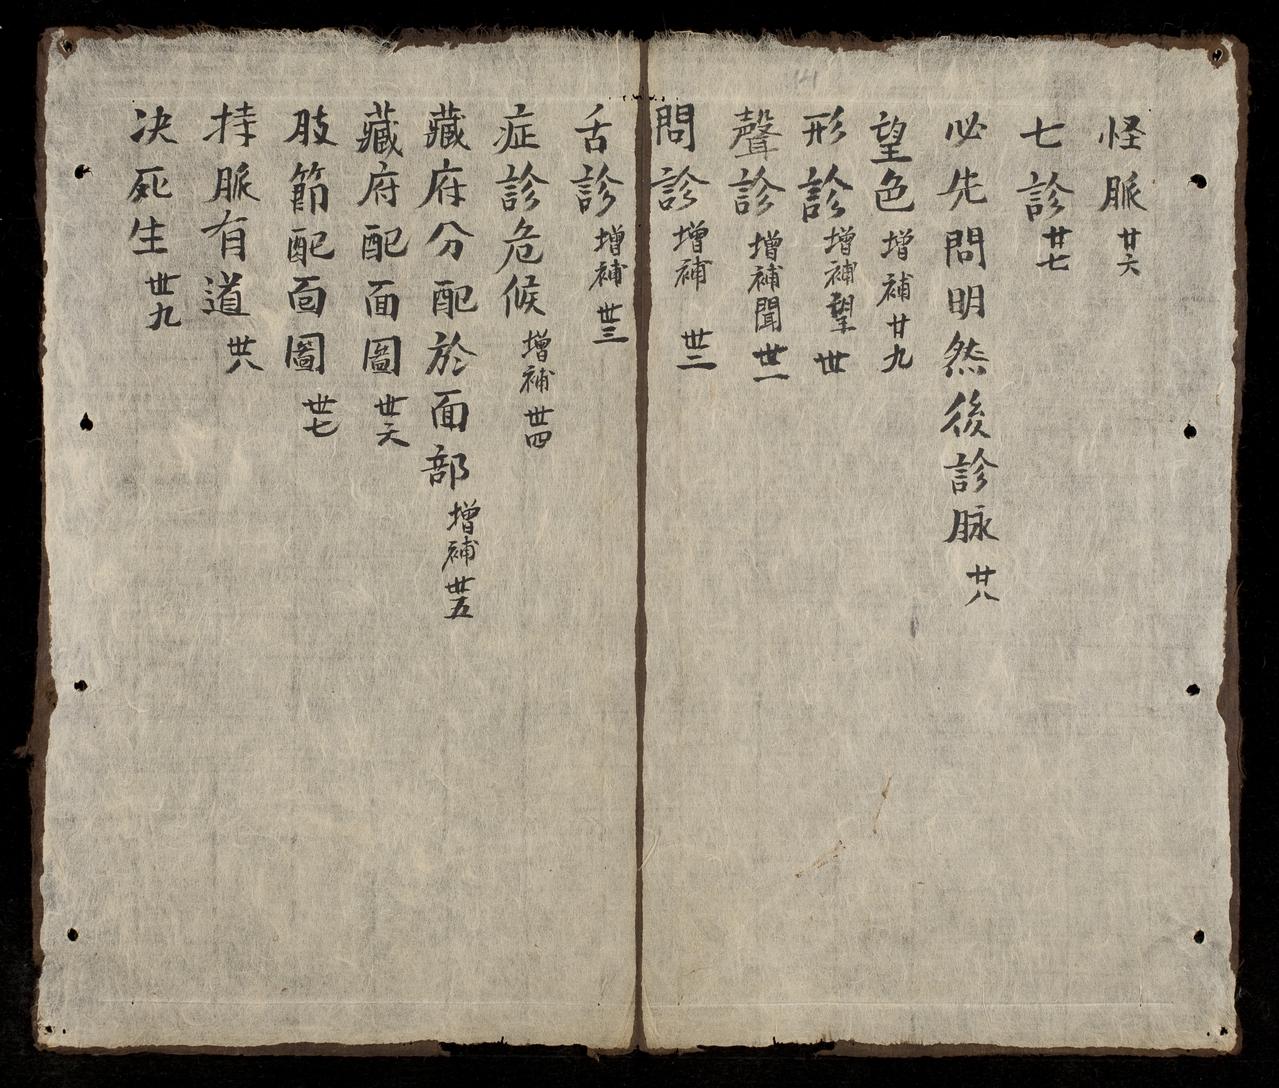 怪脈 廿六
七診 廿七
必先問明然後診脉 廿八
望色 增補 廿九
形診 增補望 丗
聲診 增補聞 丗一
問診 增補 丗二
舌診 增補 丗三
症診危候 增補 丗四
藏府分配於面部 增補 丗五
藏府配面圖 丗六
肢節配面圖 丗七
持脈有道 丗八
决死生 丗九